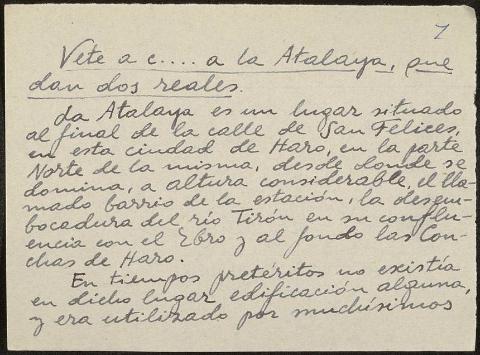 7
Vete a c.... a la Atalaya, que
dan dos reales.
La Atalaya es un lugar situado
al final de la calle de San Felices,
en esta ciudad de Haro, en la parte
Norte de la misma, desde donde se
domina, a altura considerable, el lla-
mado barrio de la estación, la desem-
bocadura del río Tirón en su conflu-
encia con el Ebro y al fondo las Con-
chas de Haro.
En tiempos pretéritos no existía
en dicho lugar edificación alguna,
y era utilizado por muchísimos